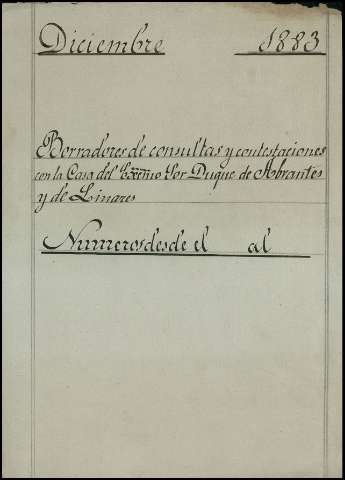 Diciembre 1883
Borradores de consultas y contestaciones
con la Casa del Excmo Sor Duque de Abrantes
y de Linares
Numeros desde el al